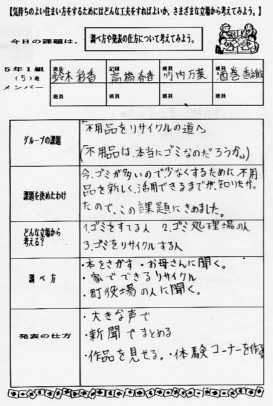 【気持ちのよい住まい方をするためにはどんな工夫をすればよいか、さまざまな立場から考えてみよう。】
今日の課題は、 調べ方や発表の仕方について考えてみよう。
5年1組
(5)班
メンバー
班長 鈴木 彩香
記録 高橋 香
竹内 万葉
酒巻
班員 班員 班員 班員
グループの課題
「不用品をリサイクルの道へ
(不用品は、本当にゴミなのだろうか)」
課題を決めたわけ
今、ゴミが多いので少なくするために、不用
品を新しく、活用できるまでが知りたかっ
たので、この課題にきめました。
どんな立場から
考える?
1.ゴミをすてる人 2.ゴミ処理場の人
3.ゴミをリサイクルする人
調べ方
・本をさがす ・お母さんに聞く。
・家でできるリサイクル
・町役場の人に聞く。
発表の仕方
・大きな声で
・新聞でまとめる
・作品を見せる。・体験コーナーを作る